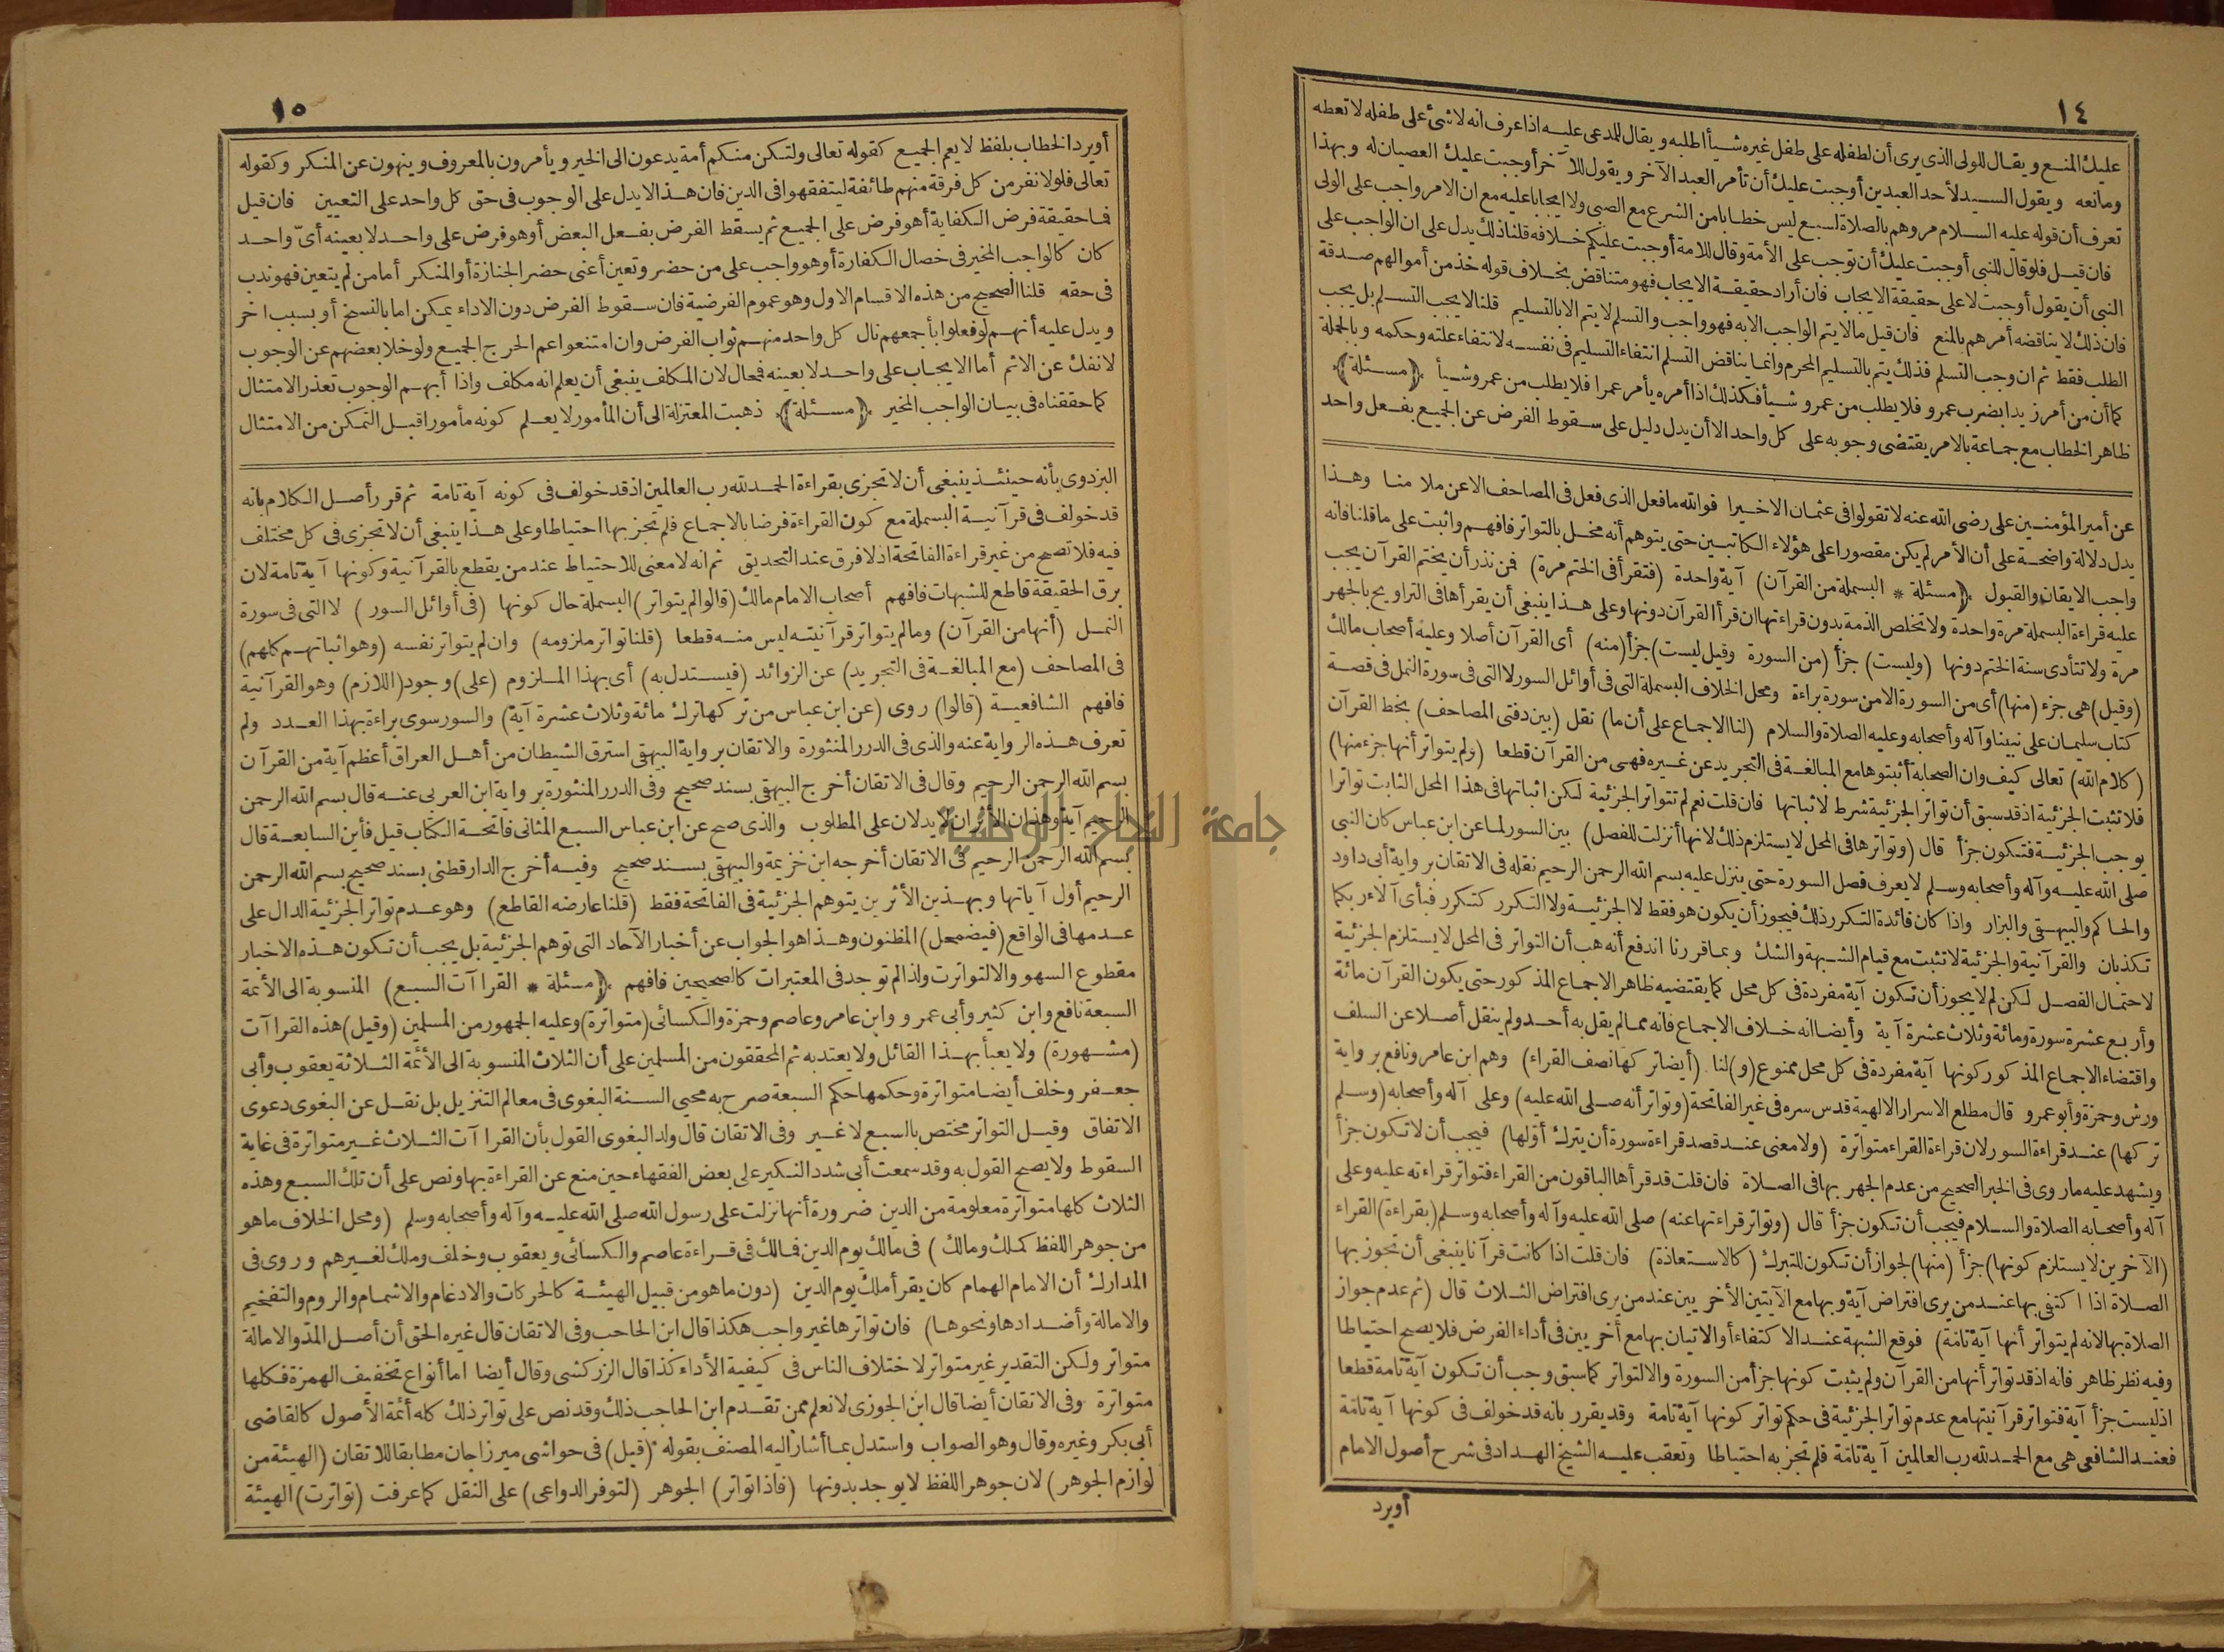 ١٤
عليك المنع ويقال للولى الذى يرى أن لطفله على طفل غيره شيأ اطلبه ويقال للمدعى عليه اذا عرف انه لا شئ على طفله لا تعطه
ومانعه ويقول السيد لأحد العبدين أوجبت عليك أن تأمر العبد الآخر ويقول للآخر أوجبت عليك العصيان له وبهذا
تعرف أن قوله عليه السلام مروهم بالصلاة لسبع ليس خطابا من الشرع مع الصبى ولا ايجابا عليه مع ان الامر واجب على الولى
فان قيل فلو قال للنبى أوجبت عليك أن توجب على الأمة وقال للامة أوجبت عليكم خلافه قلنا ذلك يدل على ان الواجب على
النبى أن يقول أوجبت لا على حقيقة الايجاب فان أراد حقيقة الايجاب فهو متناقض بخلاف قوله خذ من أموالهم صدقة
فان ذلك لا يناقضه أمرهم بالمنع فان قيل ما لا يتم الواجب الا به فهو واجب والتسلم لا يتم الا بالتسليم قلنا لا يجب التسلم بل يجب
الطلب فقط ثم ان وجب التسلم فذلك يتم بالتسليم المحرم وانما يناقض التسلم انتفاء التسليم فى نفسه لانتفاء علته وحكمه وبالجملة
كما أن من أمر زيدا بضرب عمرو فلا يطلب من عمرو شيأ فكذلك اذا أمره يأمر عمرا فلا يطلب من عمرو شيأ ﴿مسئلة﴾
ظاهر الخطاب مع جماعة بالامر يقتضى وجوبه على كل واحد الا أن يدل دليل على سقوط الفرض عن الجميع بفعل واحد
عن أمير المؤمنين على رضى الله عنه لا تقولوا فى عثمان الا خيرا فوالله ما فعل الذى فعل فى المصاحف الا عن ملا منا وهذا
يدل دلالة واضحة على أن الأمر لم يكن مقصورا على هؤلاء الكاتبين حتى يتوهم أنه مخل بالتواتر فافهم واثبت على ما قلنا فانه
واجب الايقان والقبول ﴿مسئلة * البسملة من القرآن) آية واحدة (فتقرأ فى الختم مرة) فمن نذر أن يختم القرآن يجب
عليه قراءة البسملة مرة واحدة ولا تخلص الذمة بدون قراءتها ان قرأ القرآن دونها وعلى هذا ينبغى أن يقرأها فى التراويح بالجهر
مرة ولا تتأدى سنة الختم دونها (وليست) جزأ (من السورة وقيل ليست) جزأ (منه) أى القرآن أصلا وعليه أصحاب مالك
(وقيل) هى جزء (منها) أى من السورة الا من سورة براءة ومحل الخلاف البسملة التى فى أوائل السور لا التى فى سورة النمل فى قصة
كتاب سليمان على نبينا وآله وأصحابه وعليه الصلاة والسلام (لنا الاجماع على أن ما) نقل (بين دفتى المصاحف) بخط القرآن
(كلام الله) تعالى كيف وان الصحابة أثبتوها مع المبالغة فى التجريد عن غيره فهى من القرآن قطعا (ولم يتواتر أنها جزء منها)
فلا تثبت الجزئية اذ قد سبق أن تواتر الجزئية شرط لاثباتها فان قلت نعم لم تتواتر الجزئية لكن اثباتها فى هذا المحل الثابت تواترا
يوجب الجزئية فتكون جزأ قال (وتواترها فى المحل لا يستلزم ذلك لانها أنزلت للفصل) بين السور لما عن ابن عباس كان النبى
صلى الله عليه وآله وأصحابه وسلم لا يعرف فصل السورة حتى ينزل عليه بسم الله الرحمن الرحيم نقله فى الاتقان برواية أبى داود
والحاكم والبيهقى والبزار واذا كان فائدة التكرر ذلك فيجوز أن يكون هو فقط لا الجزئية ولا التكرر كتكرر فبأى آلاء ربكما
تكذبان والقرآنية والجزئية لا تثبت مع قيام الشبهة والشك وبما قررنا اندفع أنه هب أن التواتر فى المحل لا يستلزم الجزئية
لاحتمال الفصل لكن لم لا يجوز أن تكون آية مفردة فى كل محل كما يقتضيه ظاهر الاجماع المذكور حتى يكون القرآن مائة
وأربع عشرة سورة ومائة وثلاث عشرة آية وأيضا انه خلاف الاجماع فانه مما لم يقل به أحد ولم ينقل أصلا عن السلف
واقتضاء الاجماع المذكور كونها آية مفردة فى كل محل ممنوع (و) لنا (أيضا تركها نصف القراء) وهم ابن عامر ونافع برواية
ورش وحمزة وأبو عمرو قال مطلع الاسرار الالهية قدس سره فى غير الفاتحة (وتواتر أنه صلى الله عليه) وعلى آله وأصحابه (وسلم
تركها) عند قراءة السور لان قراءة القراء متواترة (ولا معنى عند قصد قراءة سورة أن يترك أولها) فيجب أن لا تكون جزأ
ويشهد عليه ما روى فى الخبر الصحيح من عدم الجهر بها فى الصلاة فان قلت قد قرأها الباقون من القراء فتواتر قراءته عليه وعلى
آله وأصحابه الصلاة والسلام فيجب أن تكون جزأ قال (وتواتر قراءتها عنه) صلى الله عليه وآله وأصحابه وسلم (بقراءة) القراء
(الآخرين لا يستلزم كونها) جزأ (منها) لجواز أن تكون للتبرك (كالاستعاذة) فان قلت اذا كانت قرآنا ينبغى أن تجوز بها
الصلاة اذا اكتفى بها عند من يرى افتراض آية وبها مع الآيتين الأخريين عند من يرى افتراض الثلاث قال (ثم عدم جواز
الصلاة بها لانه لم يتواتر أنها آية تامة) فوقع الشبهة عند الاكتفاء أو الاتيان بها مع أخريين فى أداء الفرض فلا يصح احتياطا
وفيه نظر ظاهر فانه اذ قد تواتر أنها من القرآن ولم يثبت كونها جزأ من السورة والا لتواتر كما سبق وجب أن تكون آية تامة قطعا
اذ ليست جزأ آية فتواتر قرآنيتها مع عدم تواتر الجزئية فى حكم تواتر كونها آية تامة وقد يقرر بانه قد خولف فى كونها آية تامة
فعند الشافعى هى مع الحمد لله رب العالمين آية تامة فلم تجز به احتياطا وتعقب عليه الشيخ الهداد فى شرح أصول الامام
أويرد
١٥
أويرد الخطاب بلفظ لا يعم الجميع كقوله تعالى ولتكن منكم أمة يدعون الى الخير ويأمرون بالمعروف وينهون عن المنكر وكقوله
تعالى فلولا نفر من كل فرقة منهم طائفة ليتفقهوا فى الدين فان هذا لا يدل على الوجوب فى حق كل واحد على التعيين فان قيل
فما حقيقة فرض الكفاية أهو فرض على الجميع ثم يسقط الفرض بفعل البعض أو هو فرض على واحد لا بعينه أىّ واحد
كان كالواجب المخير فى خصال الكفارة أو هو واجب على من حضر وتعين أعنى حضر الجنازة أو المنكر أما من لم يتعين فهو ندب
فى حقه قلنا الصحيح من هذه الاقسام الاول وهو عموم الفرضية فان سقوط الفرض دون الاداء يمكن اما بالنسخ أو بسبب اخر
ويدل عليه أنهم لو فعلوا بأجمعهم نال كل واحد منهم ثواب الفرض وان امتنعوا عم الحرج الجميع ولو خلا بعضهم عن الوجوب
لانفك عن الاثم أما الايجاب على واحد لا بعينه فمحال لان المكلف ينبغى أن يعلم انه مكلف واذا أبهم الوجوب تعذر الامتثال
كما حققناه فى بيان الواجب المخير ﴿مسئلة﴾ ذهبت المعتزلة الى أن المأمور لا يعلم كونه مأمورا قبل التمكن من الامتثال
البزدوى بأنه حينئذ ينبغى أن لا تجزى بقراءة الحمد لله رب العالمين اذ قد خولف فى كونه آية تامة ثم قرر أصل الكلام بانه
قد خولف فى قرآنية البسملة مع كون القراءة فرضا بالاجماع فلم تجز بها احتياطا وعلى هذا ينبغى أن لا تجزى فى كل مختلف
فيه فلا تصح من غير قراءة الفاتحة اذ لا فرق عند التحديق ثم انه لا معنى للاحتياط عند من يقطع بالقرآنية وكونها آية تامة لان
برق الحقيقة قاطع للشبهات فافهم أصحاب الامام مالك (قالوا لم يتواتر) البسملة حال كونها (فى أوائل السور) لا التى فى سورة
النمل (أنها من القرآن) وما لم يتواتر قرآنيته ليس منه قطعا (قلنا تواتر ملزومه) وان لم يتواتر نفسه (وهو اثباتهم كلهم)
فى المصاحف (مع المبالغة فى التجريد) عن الزوائد (فيستدل به) أى بهذا الملزوم (على) وجود (اللازم) وهو القرآنية
فافهم الشافعية (قالوا) روى (عن ابن عباس من تركها ترك مائة وثلاث عشرة آية) والسور سوى براءة بهذا العدد ولم
تعرف هذه الرواية عنه والذى فى الدرر المنثورة والاتقان برواية البيهقى استرق الشيطان من أهل العراق أعظم آية من القرآن
بسم الله الرحمن الرحيم وقال فى الاتقان أخرج البيهقى بسند صحيح وفى الدرر المنثورة برواية ابن العربى عنه قال بسم الله الرحمن
الرحيم آية وهذان الأثران لا يدلان على المطلوب والذى صح عن ابن عباس السبع المثانى فاتحة الكتاب قيل فأين السابعة قال
بسم الله الرحمن الرحيم فى الاتقان أخرجه ابن خزيمة والبيهقى بسند صحيح وفيه أخرج الدارقطنى بسند صحيح بسم الله الرحمن
الرحيم أول آياتها وبهذين الأثرين يتوهم الجزئية فى الفاتحة فقط (قلنا عارضه القاطع) وهو عدم تواتر الجزئية الدال على
عدمها فى الواقع (فيضمحل) المظنون وهذا هو الجواب عن أخبار الآحاد التى توهم الجزئية بل يجب أن تكون هذه الاخبار
مقطوع السهو والا لتواترت ولذا لم توجد فى المعتبرات كالصحيحين فافهم ﴿مسئلة * القراآت السبع) المنسوبة الى الأئمة
السبعة نافع وابن كثير وأبى عمرو وابن عامر وعاصم وحمزة والكسائى (متواترة) وعليه الجمهور من المسلمين (وقيل) هذه القراآت
(مشهورة) ولا يعبأ بهذا القائل ولا يعتد به ثم المحققون من المسلمين على أن الثلاث المنسوبة الى الأئمة الثلاثة يعقوب وأبى
جعفر وخلف أيضا متواترة وحكمها حكم السبعة صرح به محيى السنة البغوى فى معالم التنزيل بل نقل عن البغوى دعوى
الاتفاق وقيل التواتر مختص بالسبع لا غير وفى الاتقان قال ولد البغوى القول بأن القراآت الثلاث غير متواترة فى غاية
السقوط ولا يصح القول به وقد سمعت أبى شدد النكير على بعض الفقهاء حين منع عن القراءة بها ونص على أن تلك السبع وهذه
الثلاث كلها متواترة معلومة من الدين ضرورة أنها نزلت على رسول الله صلى الله عليه وآله وأصحابه وسلم (ومحل الخلاف ما هو
من جوهر اللفظ كملك ومالك) فى مالك يوم الدين فمالك فى قراءة عاصم والكسائى ويعقوب وخلف وملك لغيرهم وروى فى
المدارك أن الامام الهمام كان يقرأ ملك يوم الدين (دون ما هو من قبيل الهيئة كالحركات والادغام والاشمام والروم والتفخيم
والامالة وأضدادها ونحوها) فان تواترها غير واجب هكذا قال ابن الحاجب وفى الاتقان قال غيره الحق أن أصل المدّ والامالة
متواتر ولكن التقدير غير متواتر لاختلاف الناس فى كيفية الأداء كذا قال الزركشى وقال أيضا اما أنواع تخفيف الهمزة فكلها
متواترة وفى الاتقان أيضا قال ابن الجوزى لا نعلم ممن تقدم ابن الحاجب ذلك وقد نص على تواتر ذلك كله أئمة الأصول كالقاضى
أبى بكر وغيره وقال وهو الصواب واستدل بما أشار اليه المصنف بقوله (قيل) فى حواشى ميرزاجان مطابقا للاتقان (الهيئة من
لوازم الجوهر) لان جوهر اللفظ لا يوجد بدونها (فاذا تواتر) الجوهر (لتوفر الدواعى) على النقل كما عرفت (تواترت) الهيئة
جامعة النجاح الوطنية